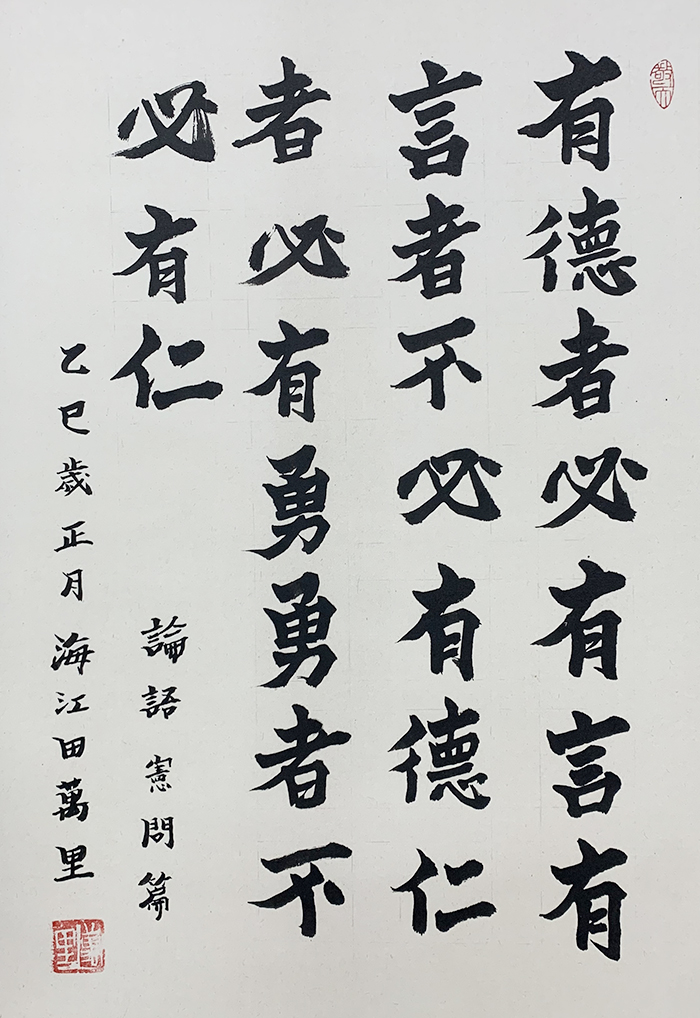 有德者必有言有
言者不必有德仁
者必有勇勇者不
必有仁
論語憲問篇
乙巳歲正月海江田萬里